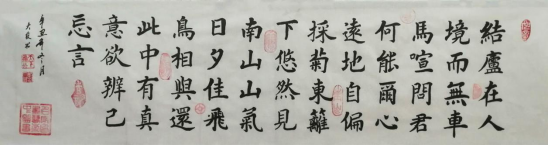 結廬在人
境而無車
馬喧問君
何能爾心
遠地自偏
採菊東籬
下悠然見
南山山氣
日夕佳飛
鳥相與還
此中有真
意欲辨已
忘言
辛丑年